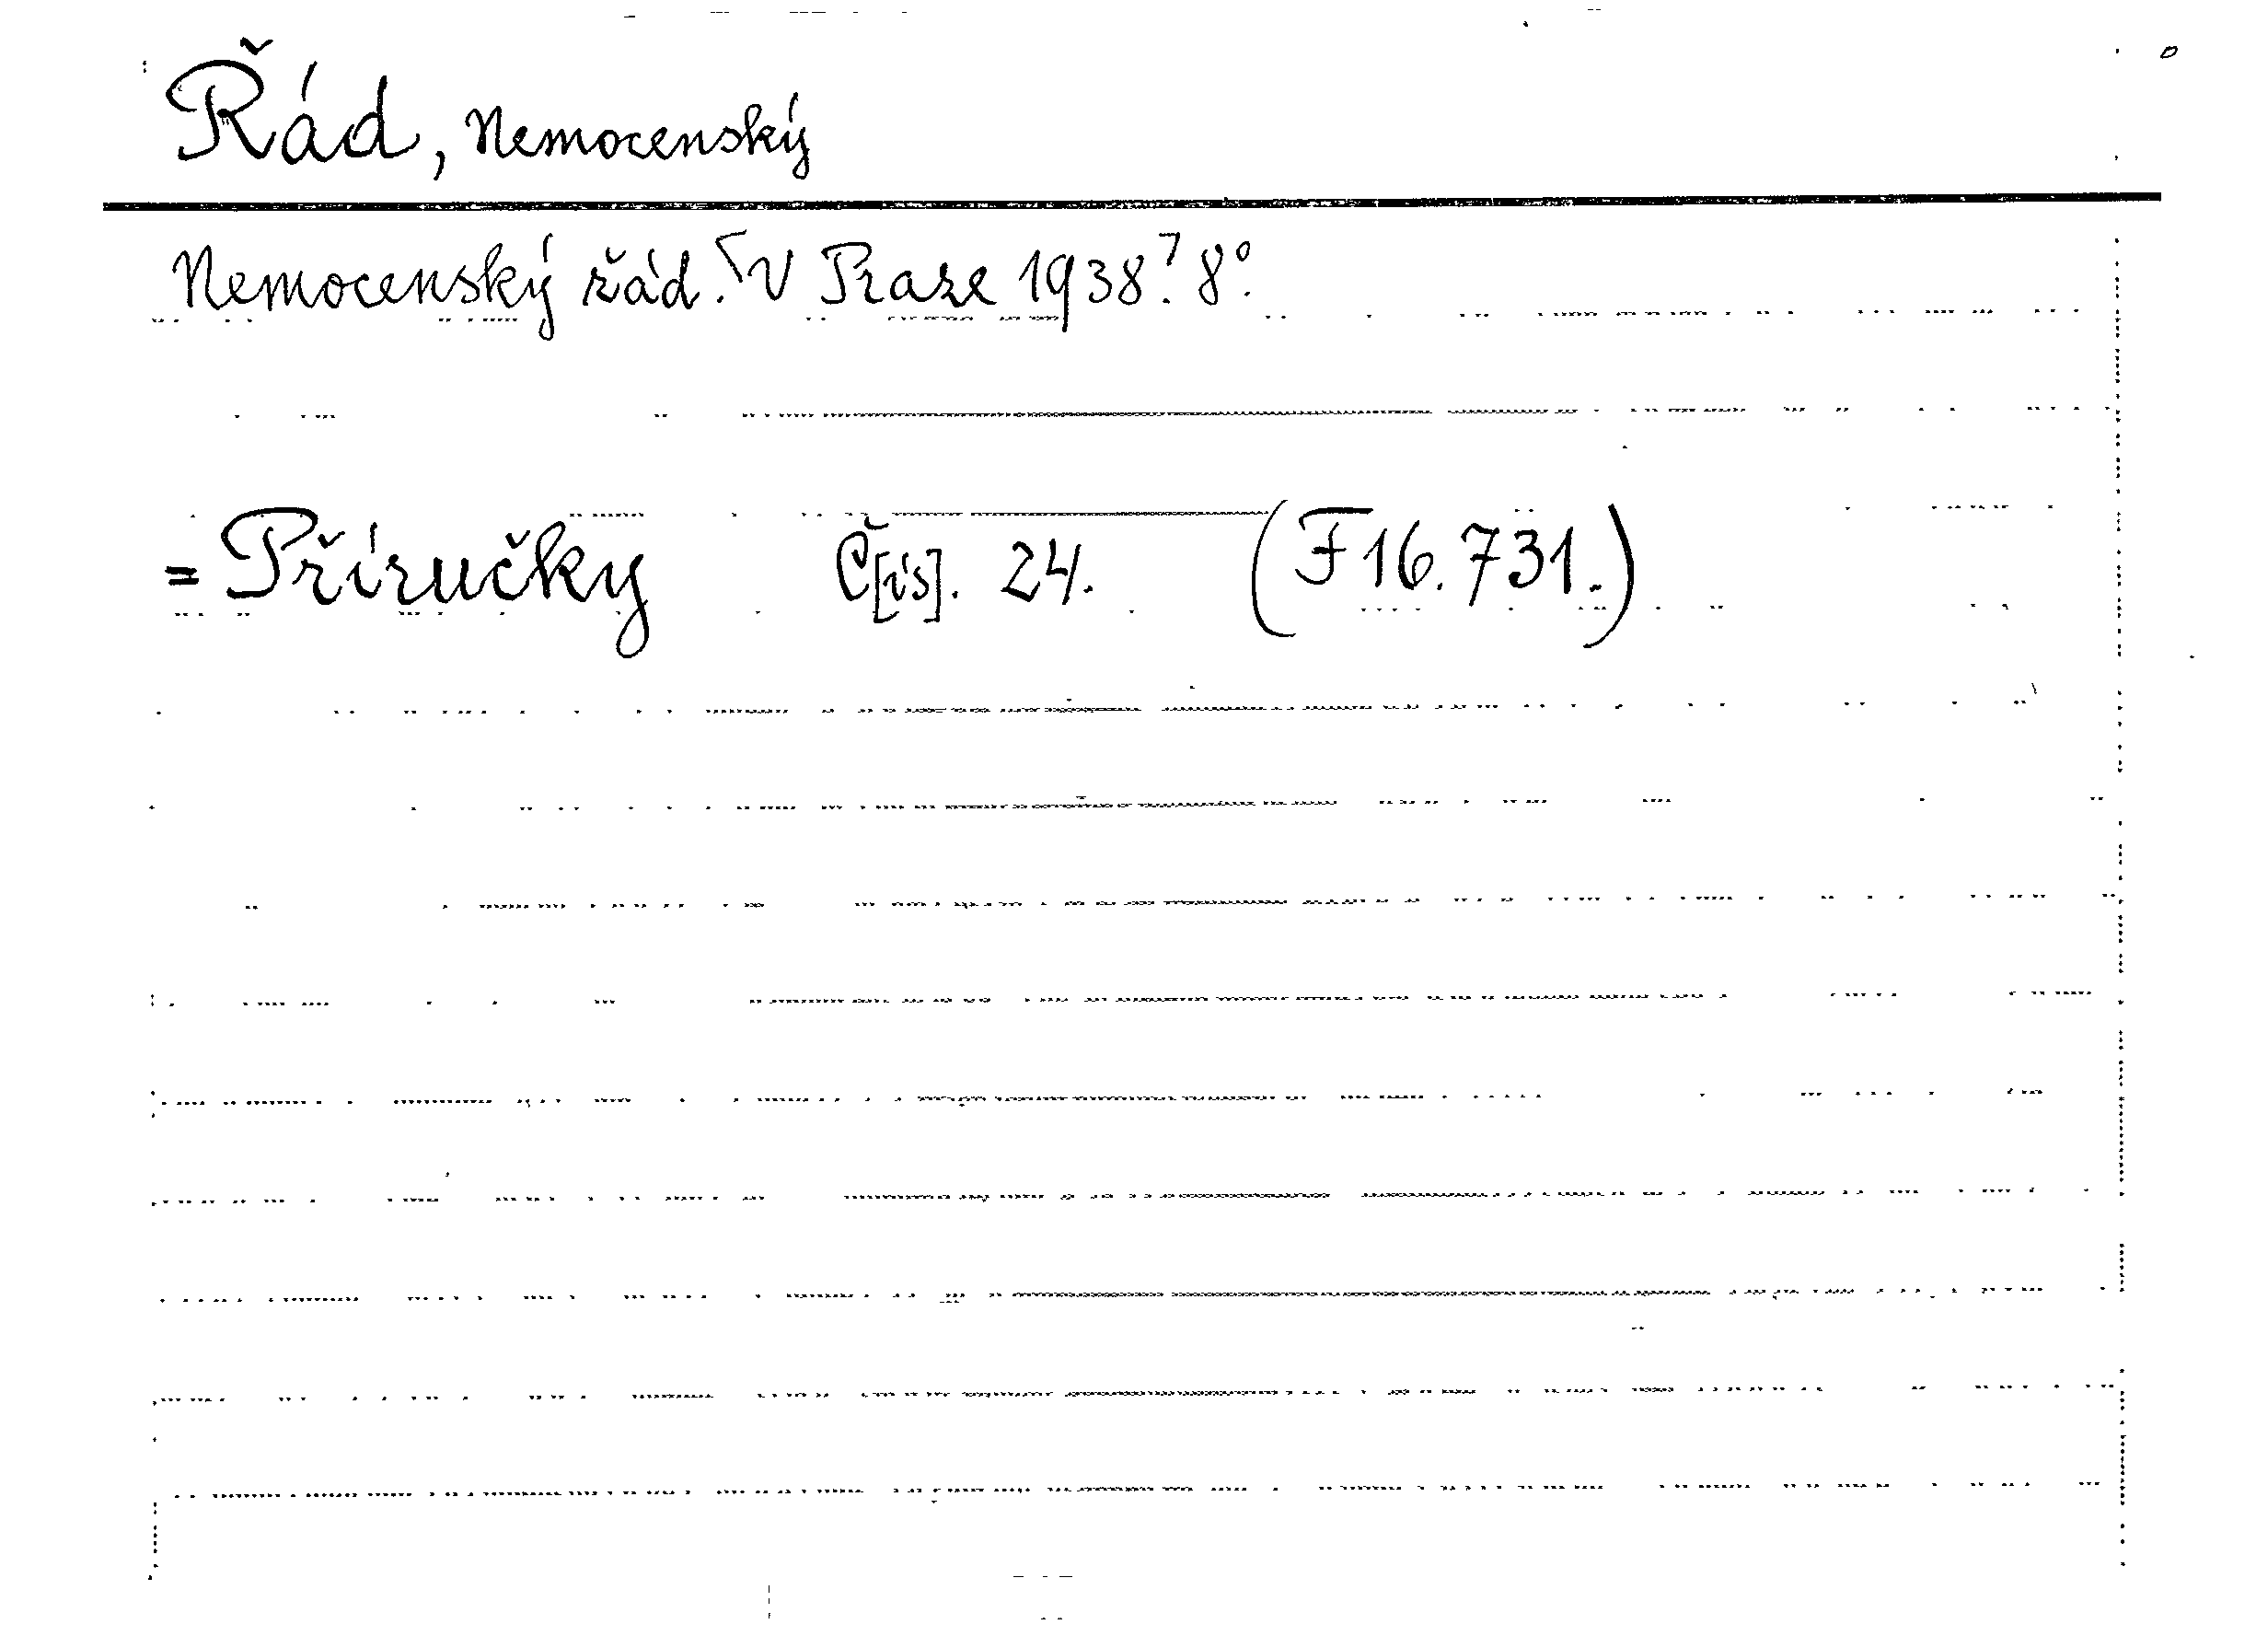 Řád, Nemocenský
Nemocenský řád. ⌈V Praze 1938⌉. 8°.
= Příručky Č[ís]. 24. (F16.731.)